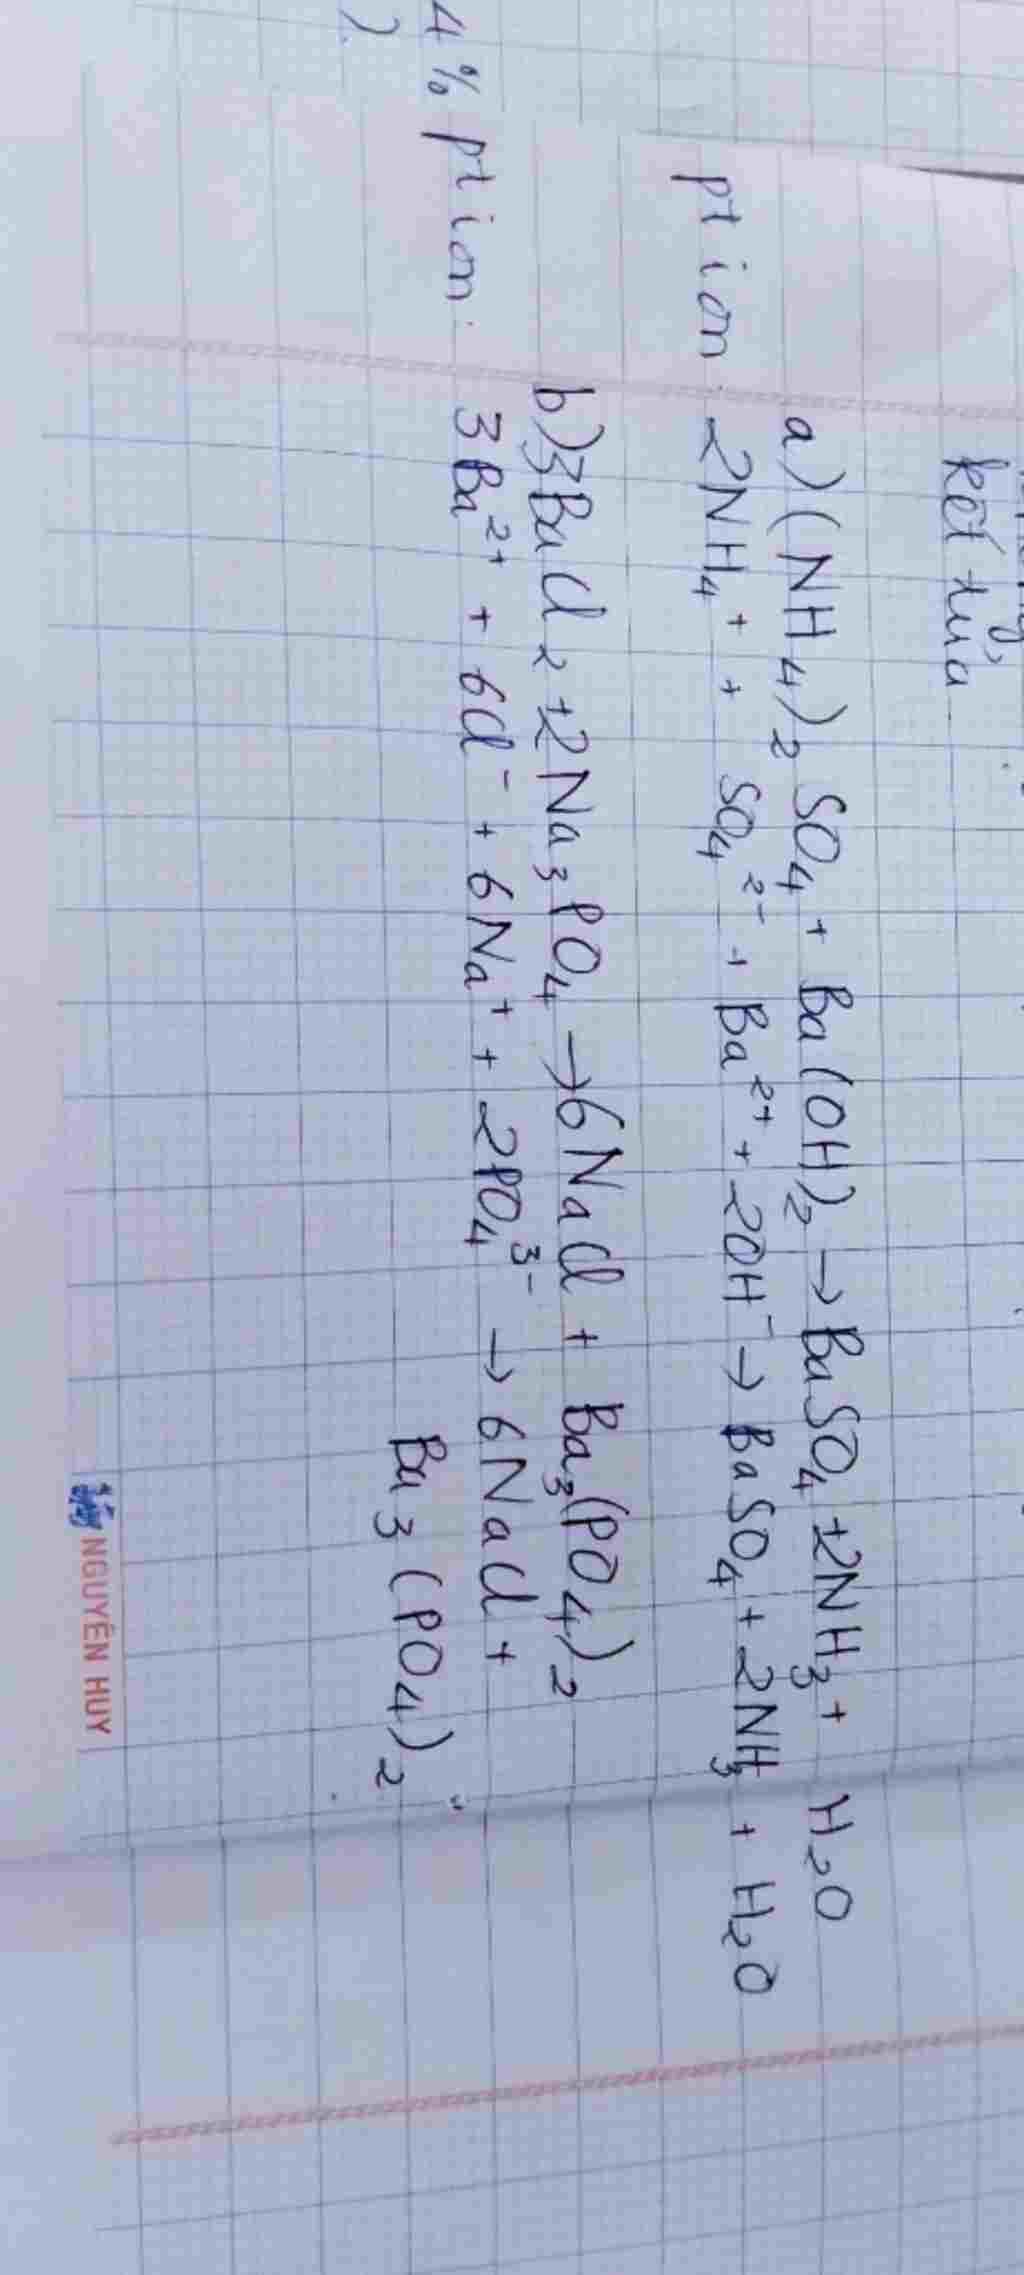 kết tủa
a) (NH4)2 SO4 + Ba(OH)2 → BaSO4 + 2NH3 + H2O
pt ion: 2NH4+ + SO4 2- + Ba2+ + 2OH- → BaSO4 + 2NH3 + H2O
b) 3BaCl2 + 2Na3PO4 → 6NaCl + Ba3(PO4)2
4% pt ion: 3Ba2+ + 6Cl- + 6Na+ + 2PO4 3- → 6NaCl +
Ba3(PO4)2
)
NGUYÊN HUY